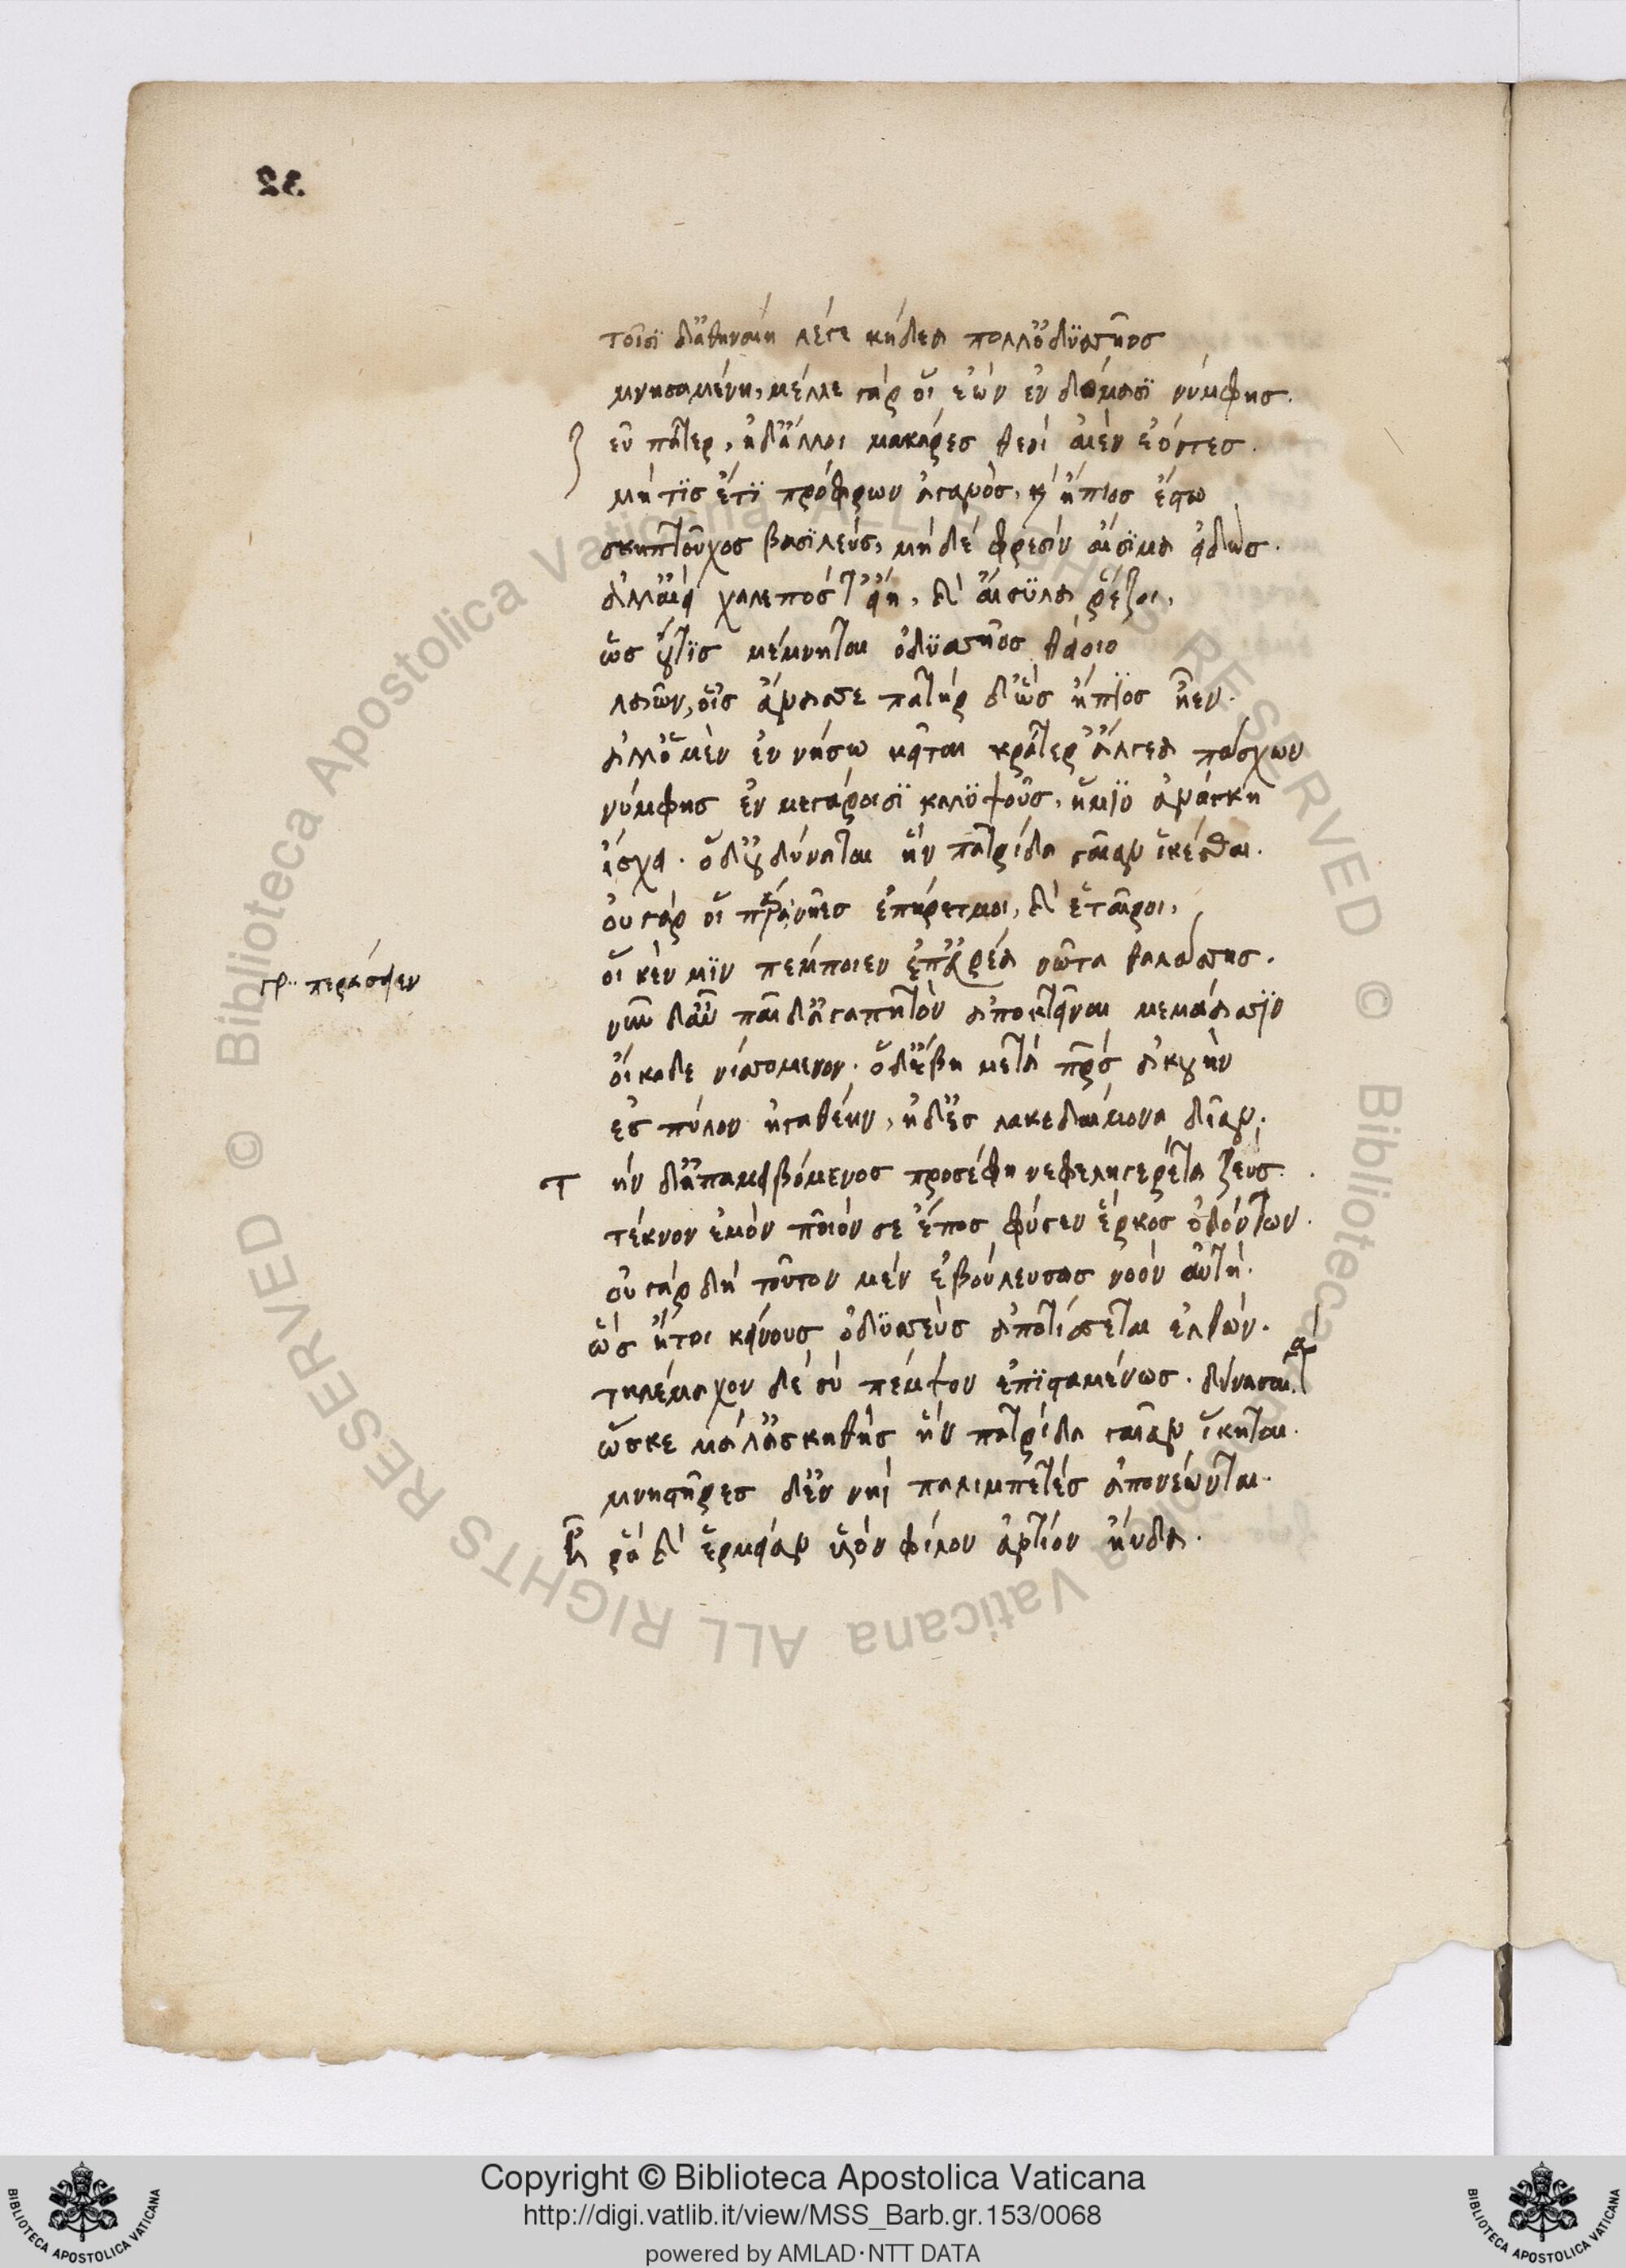 τοῖσι δ' ἀθηναίη λέγε κήδεα πόλλ' ὀδυσσῆος
μνησαμένη, μέλλε γάρ οἱ ἐὼν ἐν δώμασι νύμφης.
ευ πάτερ, ἠδ' ἄλλοι μάκαρες θεοὶ αἰὲν ἐόντες.
μή τις ἔτι πρόφρων ἀγανός, καὶ ἤπιος ἔστω
σκηπτοῦχος βασιλεύς, μηδὲ φρεσὶν αἴσιμα εἰδώς.
ἀλλ' αἰεὶ χαλεπός τ' εἴη, καὶ αἴσυλα ῥέζοι,
ὡς οὔτις μέμνηται ὀδυσσῆος θείοιο
λαῶν, οἷσιν ἄνασσε πατὴρ δ' ὣς ἤπιος ἦεν.
ἀλλ' ὁ μὲν ἐν νήσω κεῖται κρατέρ' ἄλγεα πάσχων
νύμφης ἐν μεγάροισι καλυψοῦς, ἥ μιν ἀνάγκη
ἴσχει. ὁ δ' οὐ δύναται ἣν πατρίδα γαῖαν ἱκέσθαι.
οὐ γάρ οἱ πάρα νῆες ἐπήρετμοι, καὶ ἑταῖροι,
οἵ κέν μιν πέμποιεν ἐπ' εὐρέα νῶτα θαλάσσης.
γρ. περάσειεν
νῦν δ' αὖ παῖδ' ἀγαπητὸν ἀποκτεῖναι μεμάασιν
οἴκαδε νισσόμενον. ὁ δ' ἔβη μετὰ πατρὸς ἀκουὴν
ἐς πύλον ἠγαθέην, ἠδ' ἐς λακεδαίμονα δῖαν.
Τ ὴν δ' ἀπαμειβόμενος προσέφη νεφεληγερέτα ζεύς.
τέκνον ἐμὸν ποῖόν σε ἔπος φύγεν ἕρκος ὀδόντων.
οὐ γὰρ δὴ τοῦτον μὲν ἐβούλευσας νόον αὐτή.
ὡς ἤτοι κείνους ὀδυσσεὺς ἀποτίσεται ἐλθών.
τηλέμαχον δὲ σὺ πέμψον ἐπισταμένως. δύνασαι γάρ
ὥς κε μάλ' ἀσκηθὴς ἣν πατρίδα γαῖαν ἵκηται.
μνηστῆρες δ' ἐν νηῒ παλιμπετὲς ἀπονέωνται.
Ἦ ῥα καὶ ἑρμείαν υἱὸν φίλον ἀντίον ηὔδα.